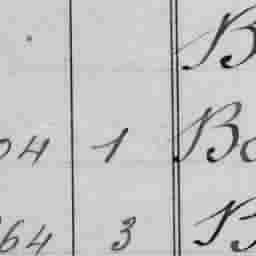 B
04 1 Bo
64 3 B